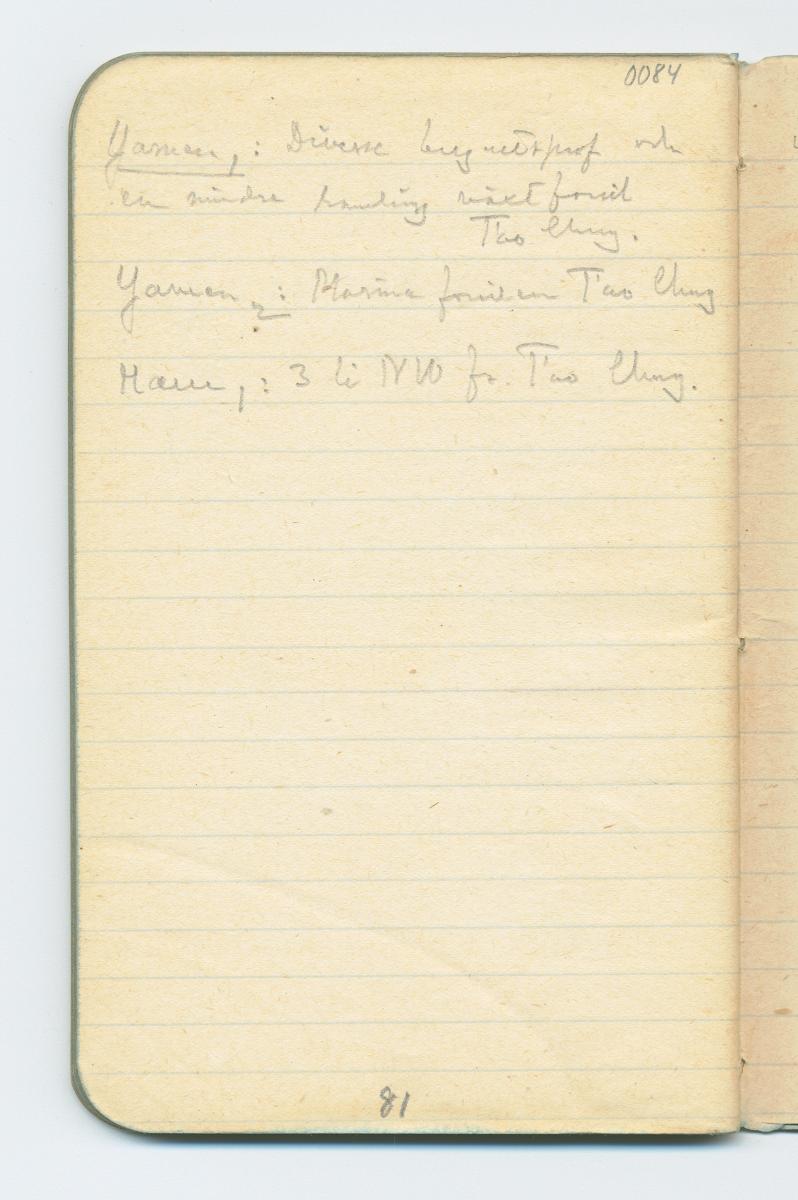 0084
Yamen₁: Diverse bergartsprof och
en mindre samling växtfossil
T'ao Chung.
Yamen₂: Marina fossil från T'ao Chung
Mau₁: 3 li NW fr. T'ao Chung.
81